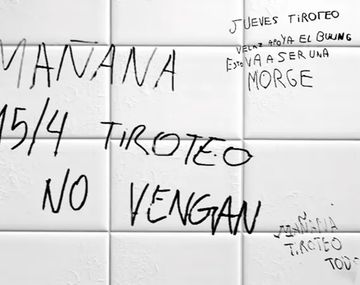 MAÑANA
15/4 TIROTEO
NO VENGAN
JUEVES TIROTEO
VELAZ APOYA EL BULING
ESTO VA A SER UNA
MORGE
MAÑANA
TIROTEO
TODO